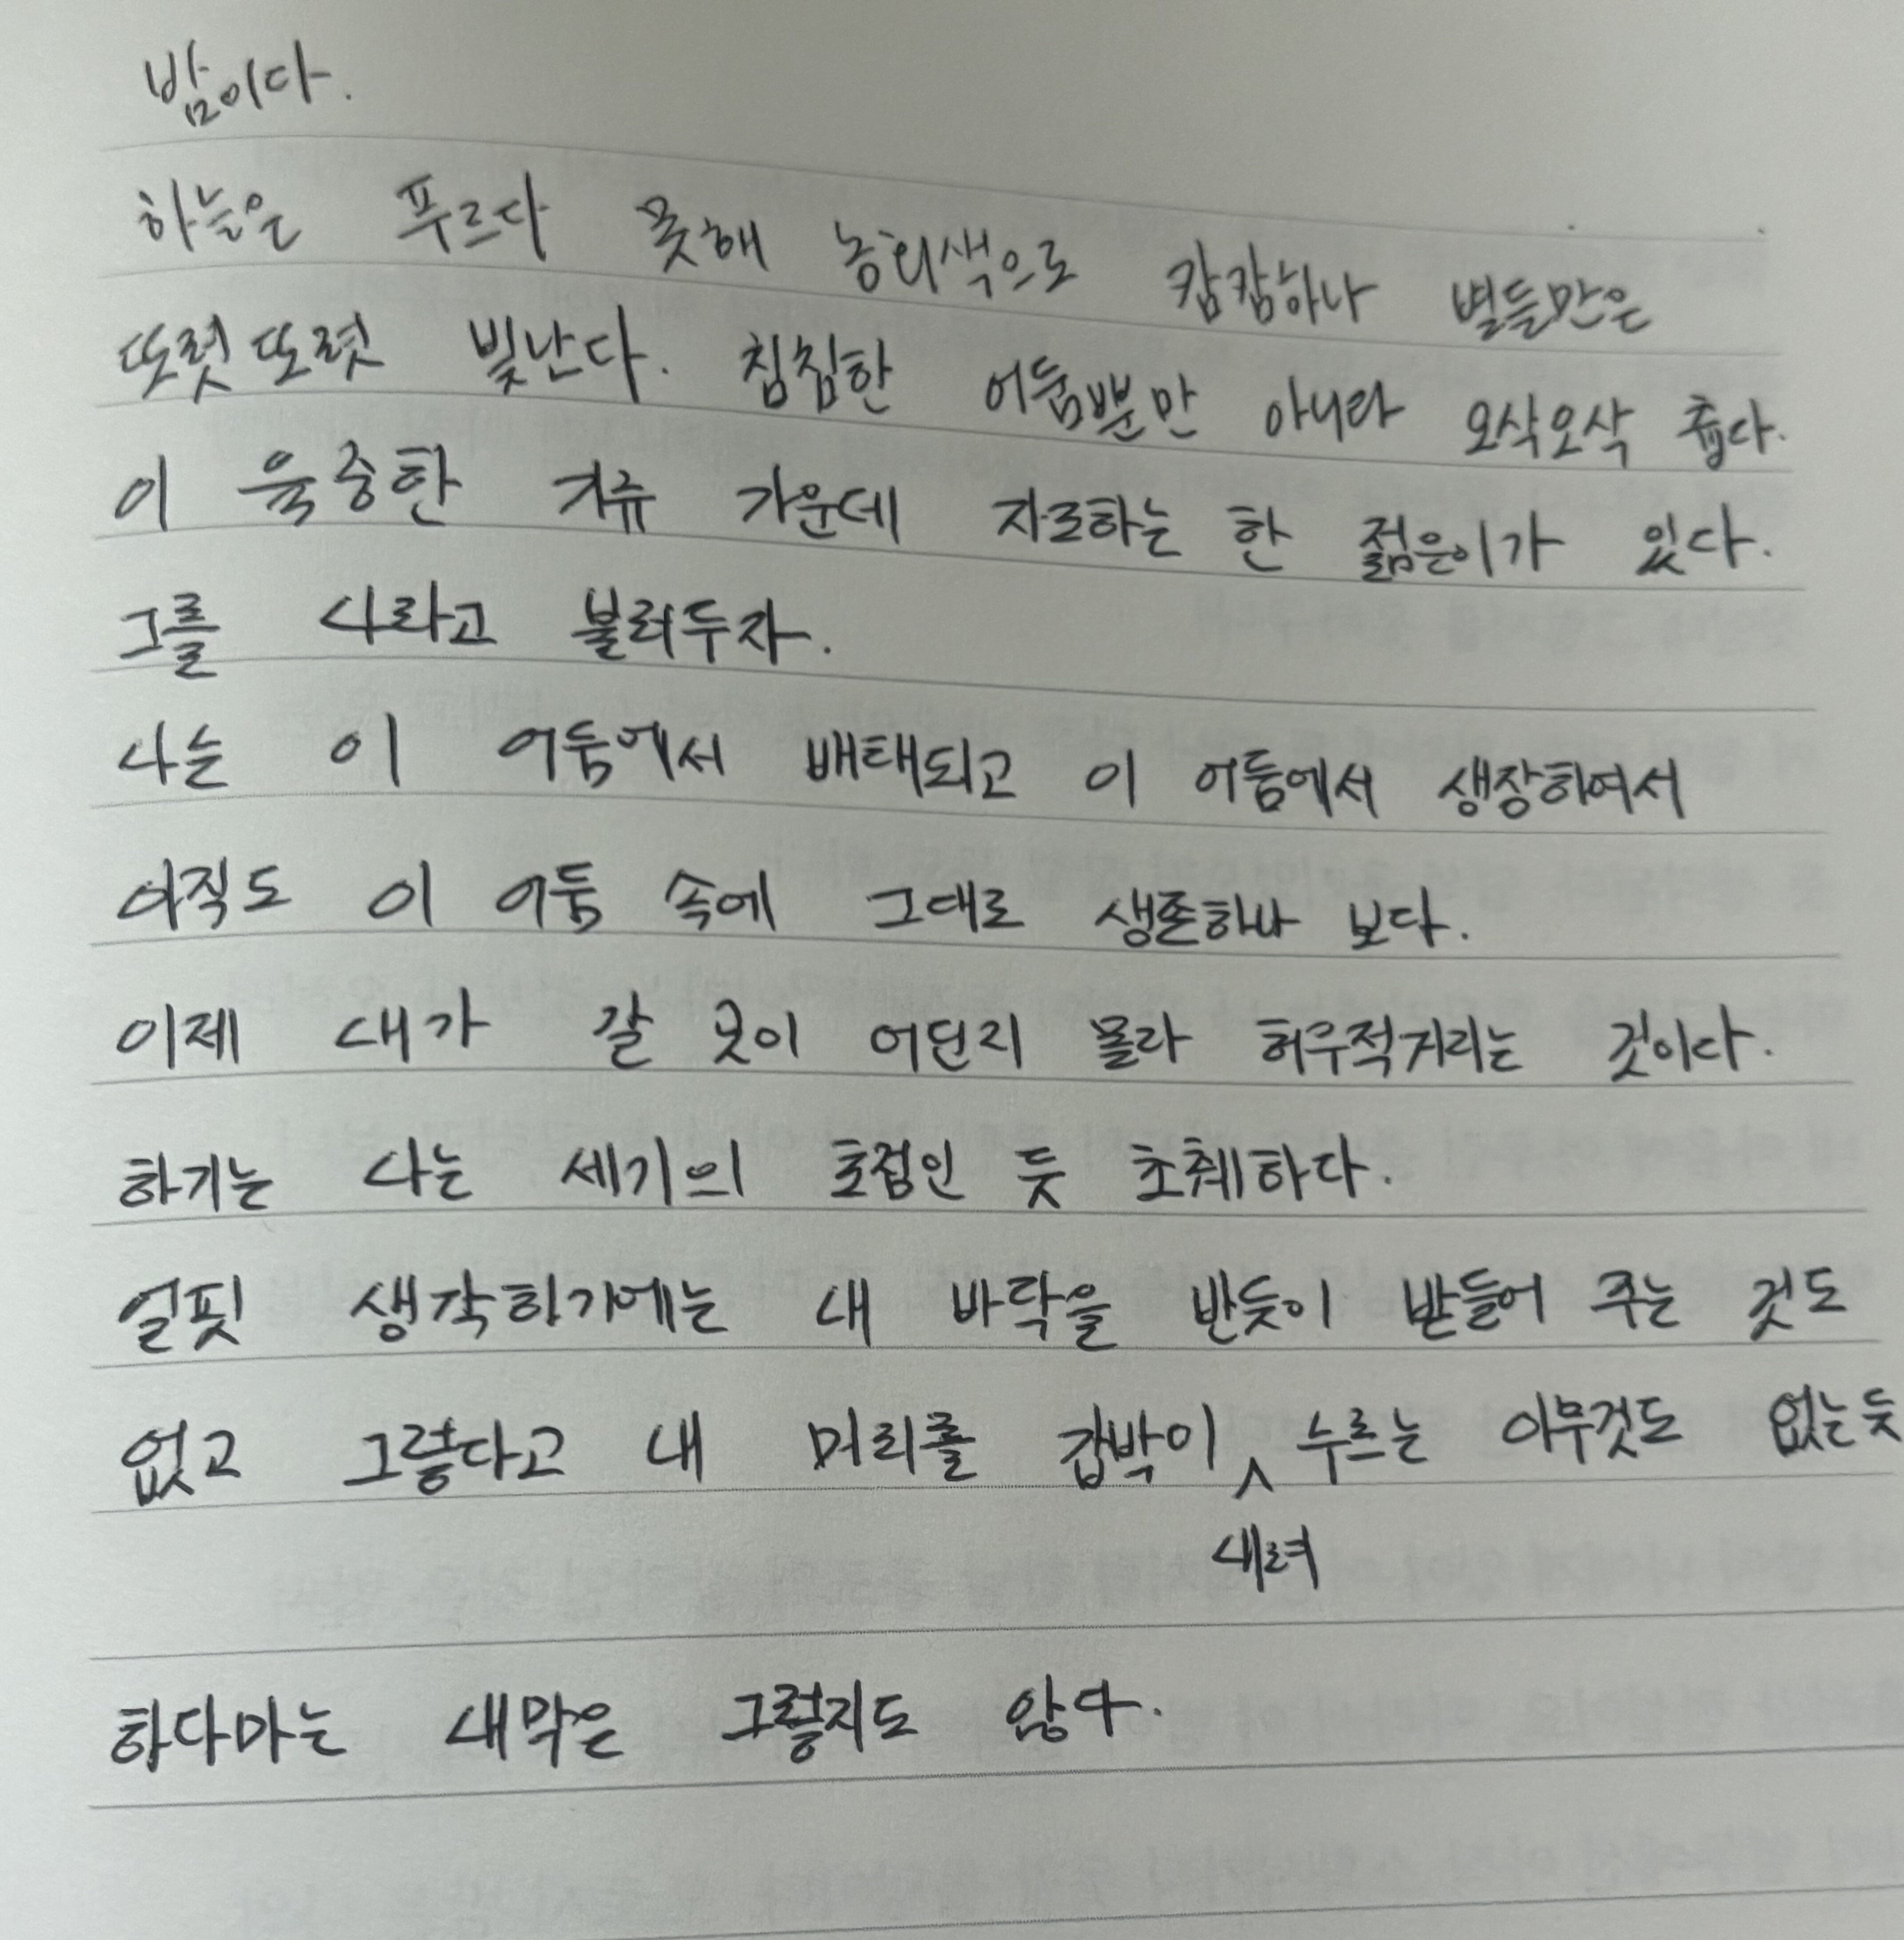 밤이다.
하늘은 푸르다 못해 농회색으로 캄캄하나 별들만은
또렷또렷 빛난다. 침침한 어둠뿐만 아니라 오삭오삭 춥다.
이 육중한 기류 가운데 자조하는 한 젊은이가 있다.
그를 나라고 불러두자.
나는 이 어둠에서 배태되고 이 어둠에서 생장하여서
아직도 이 어둠 속에 그대로 생존하나 보다.
이제 내가 갈 곳이 어딘지 몰라 허우적거리는 것이다.
하기는 나는 세기의 초점인 듯 초췌하다.
얼핏 생각하기에는 내 바닥을 반듯이 받들어 주는 것도
없고 그렇다고 내 머리를 갑박이 ∧ 누르는 아무것도 없는듯
내려
하다마는 내막은 그렇지도 않다.